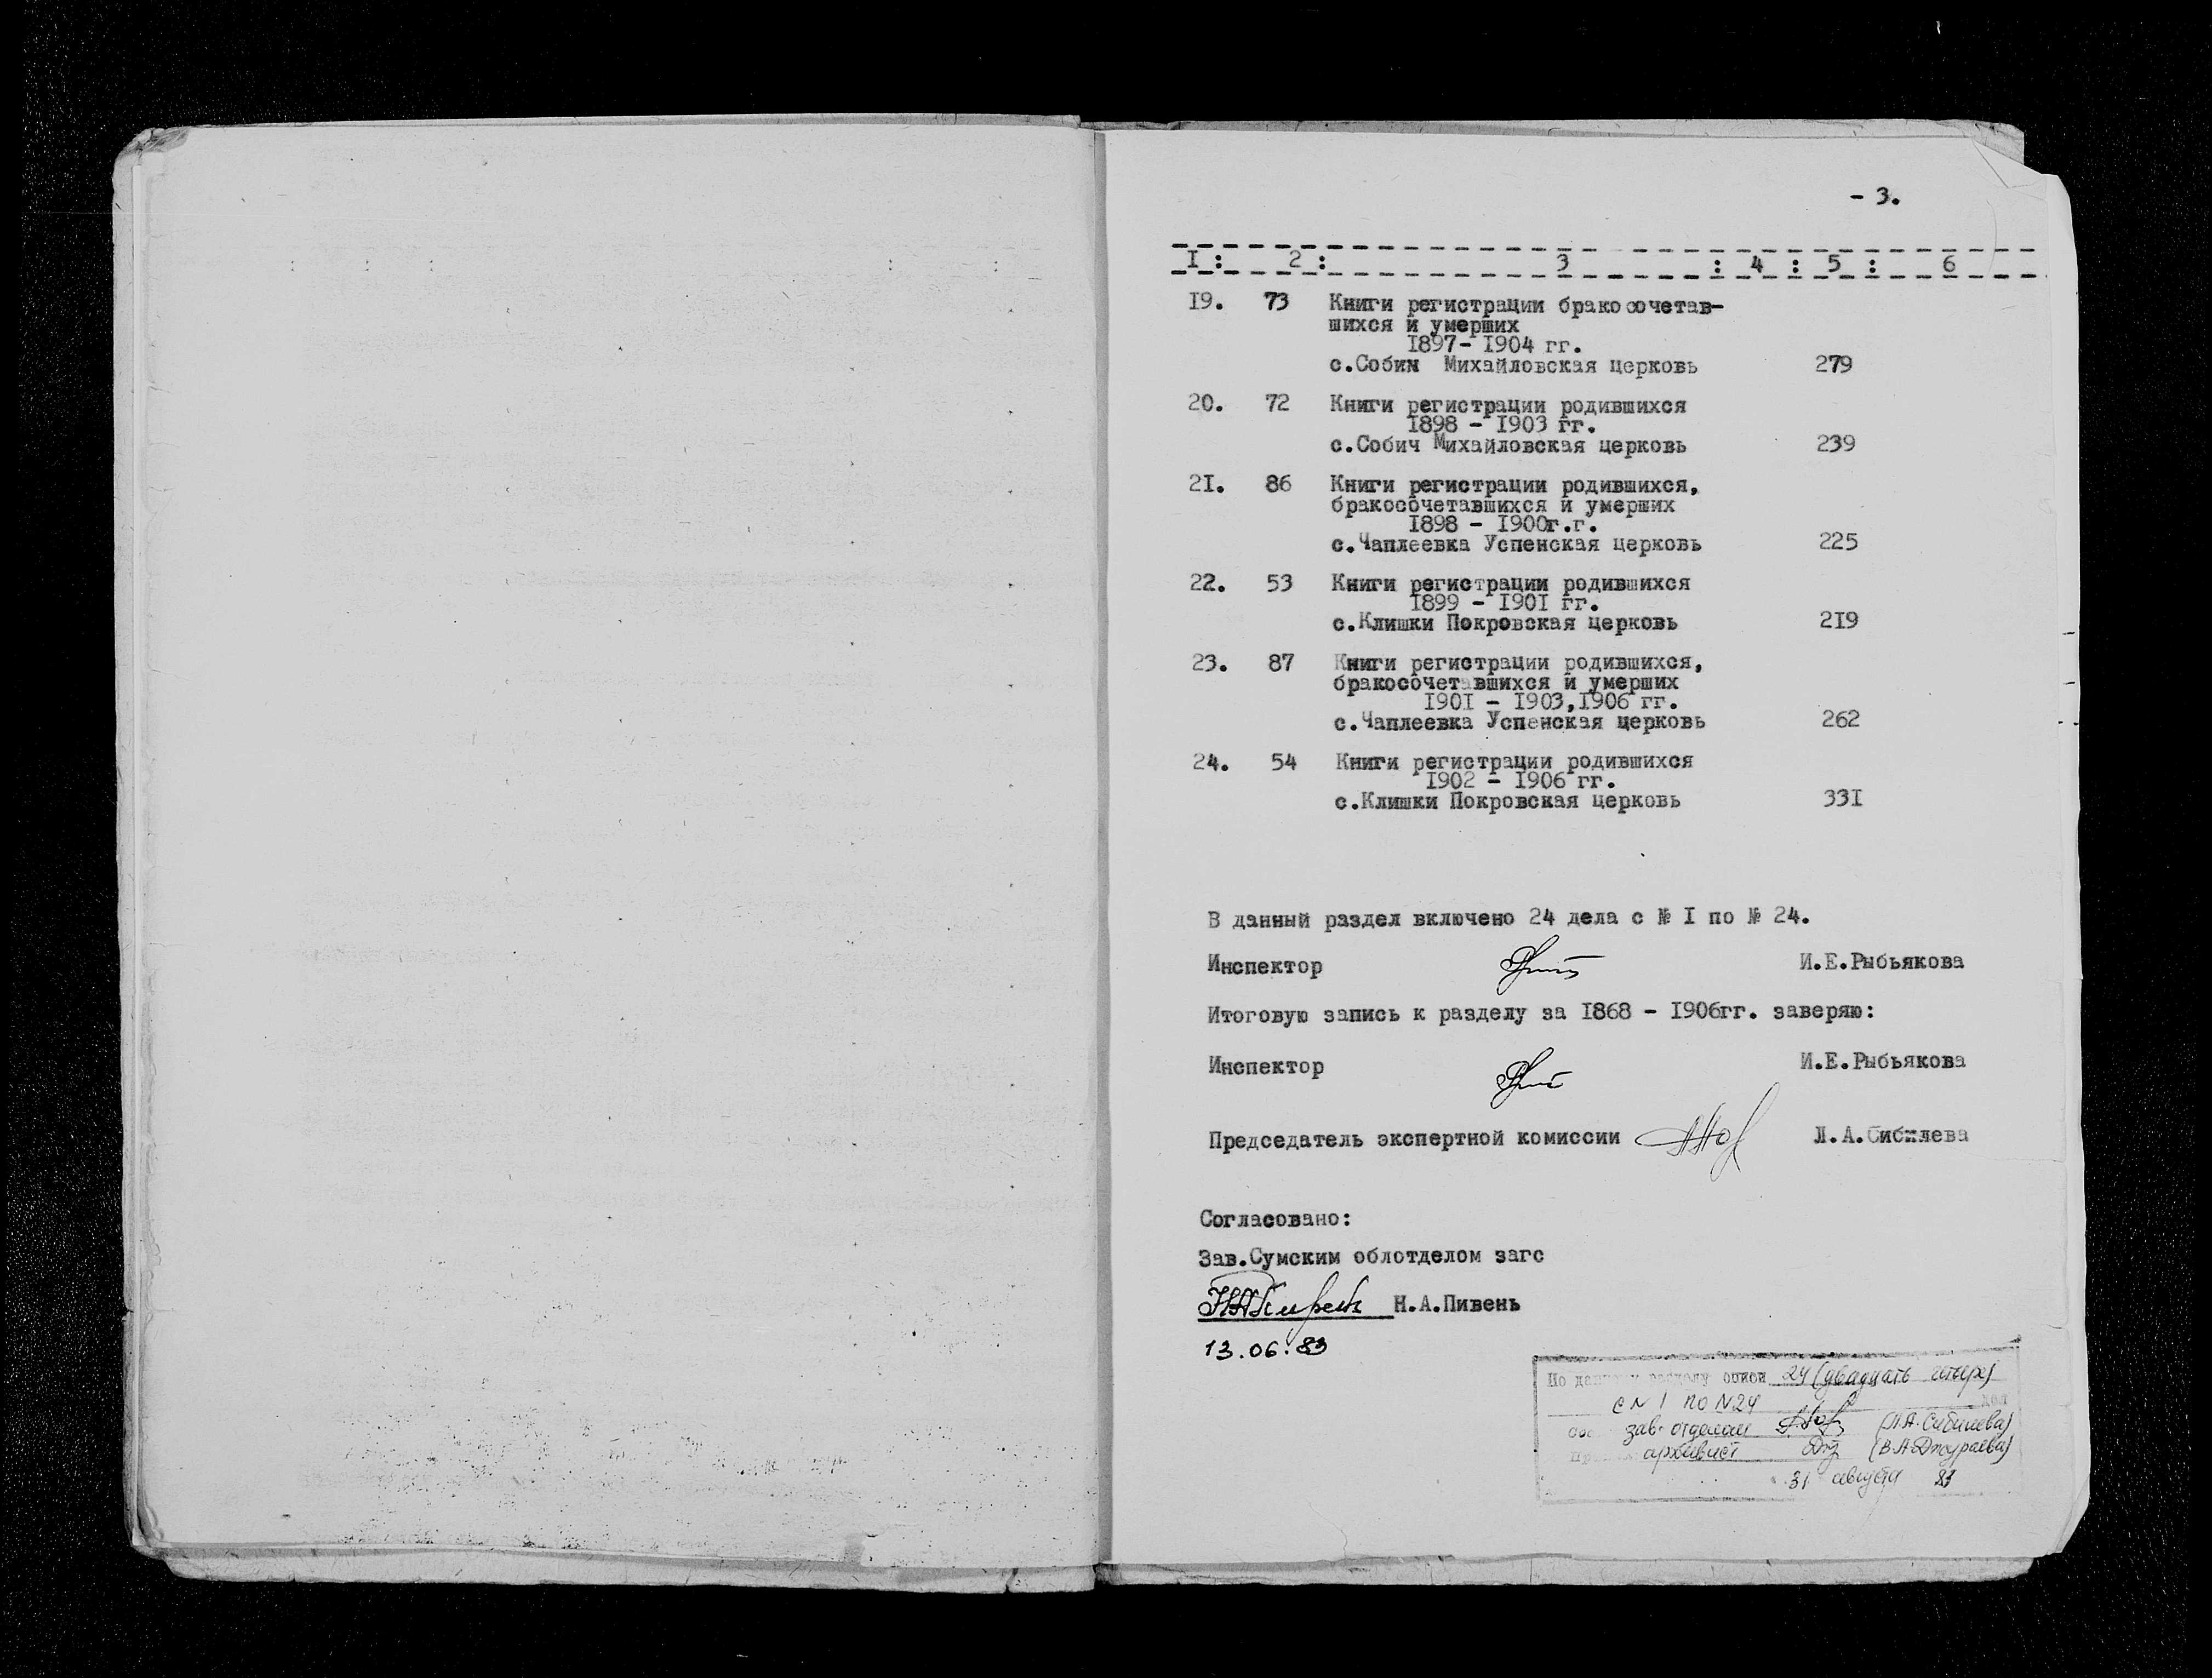 - 3.
I : 2 : 3 : 4 : 5 : 6
19. 73 Книги регистрации бракосочетав-
шихся и умерших
1897- 1904 гг.
с.Собич Михайловская церковь 279
20. 72 Книги регистрации родившихся
1898 - 1903 гг.
с.Собич Михайловская церковь 239
21. 86 Книги регистрации родившихся,
бракосочетавшихся и умерших
1898 - 1900г.г.
с.Чаплеевка Успенская церковь 225
22. 53 Книги регистрации родившихся
1899 - 1901 гг.
с.Клишки Покровская церковь 219
23. 87 Книги регистрации родившихся,
бракосочетавшихся и умерших
1901 - 1903,1906 гг.
с.Чаплеевка Успенская церковь 262
24. 54 Книги регистрации родившихся
1902 - 1906 гг.
с.Клишки Покровская церковь 331
В данный раздел включено 24 дела с № I по № 24.
Инспектор И.Е.Рыбьякова
Итоговую запись к разделу за 1868 - 1906гг. заверяю:
Инспектор И.Е.Рыбьякова
Председатель экспертной комиссии Л.А.Сибилева
Согласовано:
Зав.Сумским облотделом загс
Н.А.Пивень
13.06.83
По данному разделу описи 24 (двадцать четыре)
с N 1 по N 24
зав. отделом (Л.А. Сибилева)
архивист (В.А Джураева)
31 августа 83